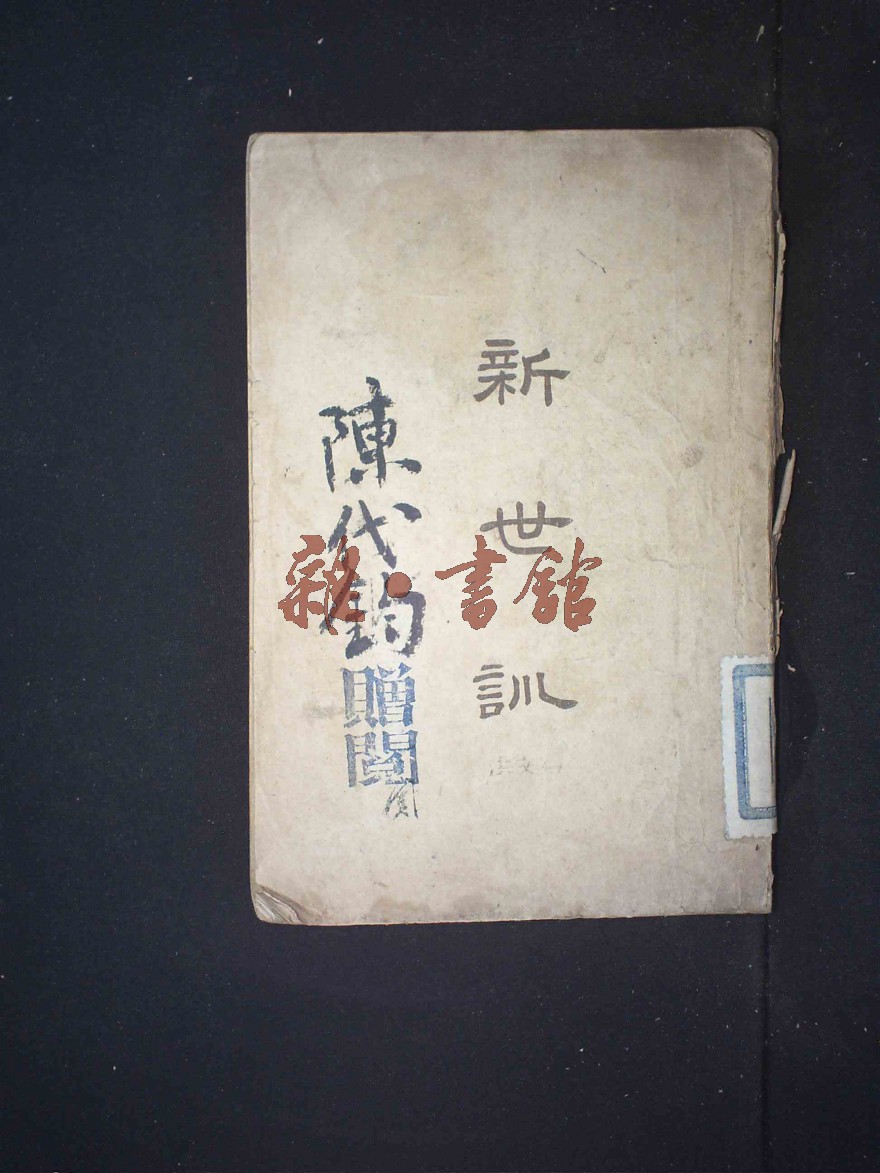 新世訓
陳代鈞
贈閱
雜·書館